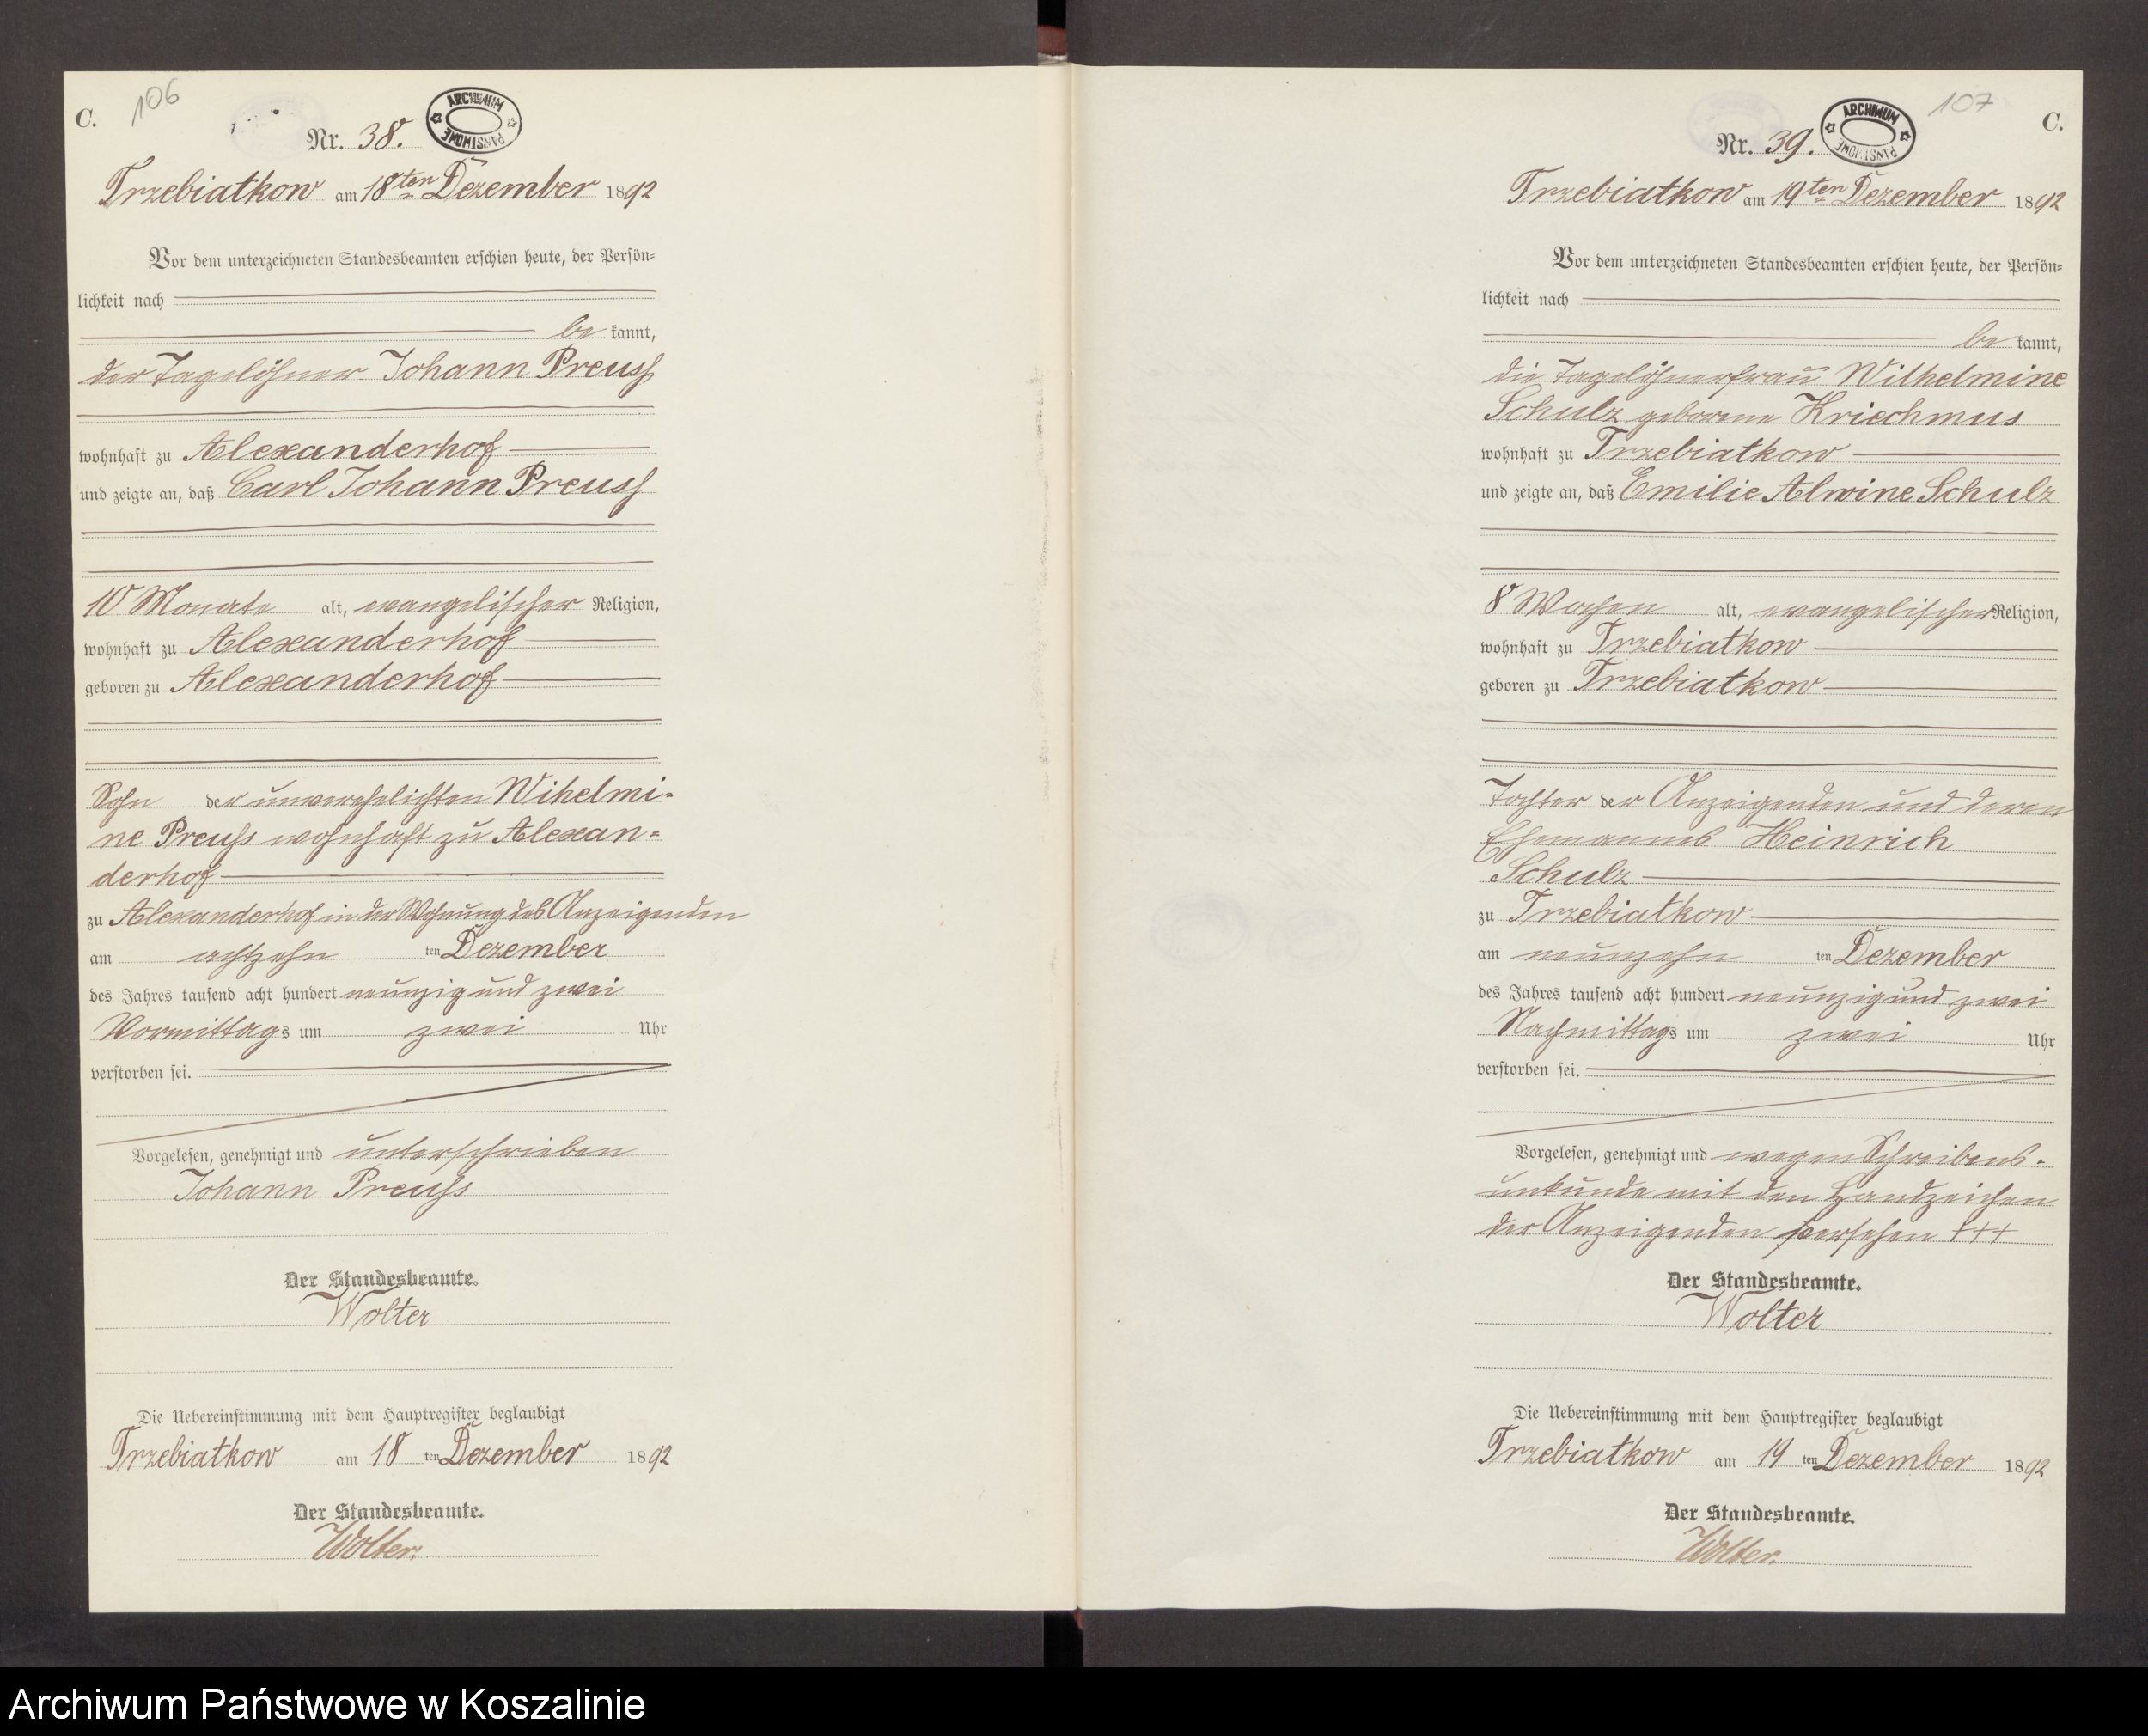 C.
106
ARCHIWUM PAŃSTWOWE
Nr. 38.
Trzebiatkow am 18ten Dezember 1892
Vor dem unterzeichneten Standesbeamten erschien heute, der Persön-
lichkeit nach
be kannt,
der Tagelöhner Johann Preuss
wohnhaft zu Alexanderhof
und zeigte an, daß Carl Johann Preuss
10 Monate alt, evangelischer Religion,
wohnhaft zu Alexanderhof
geboren zu Alexanderhof
Sohn der unverehelichten Wihelmi-
ne Preuss wohnhaft zu Alexan-
derhof
zu Alexanderhof in der Wohnung des Anzeigenden
am achtzehn ten Dezember
des Jahres tausend acht hundert neunzig und zwei
Vormittags um zwei Uhr
verstorben sei.
Vorgelesen, genehmigt und unterschrieben
Johann Preuss
Der Standesbeamte.
Wolter
Die Uebereinstimmung mit dem Hauptregister beglaubigt
Trzebiatkow am 18 ten Dezember 1892
Der Standesbeamte.
Wolter.
107
C.
ARCHIWUM PAŃSTWOWE
Nr. 39.
Trzebiatkow am 19ten Dezember 1892
Vor dem unterzeichneten Standesbeamten erschien heute, der Persön-
lichkeit nach
be kannt,
die Tagelöhnerfrau Wilhelmine
Schulz geborene Kriechmus
wohnhaft zu Trzebiatkow
und zeigte an, daß Emilie Alwine Schulz
8 Wochen alt, evangelischer Religion,
wohnhaft zu Trzebiatkow
geboren zu Trzebiatkow
Tochter der Anzeigenden und deren
Ehemannes Heinrich
Schulz
zu Trzebiatkow
am neunzehn ten Dezember
des Jahres tausend acht hundert neunzig und zwei
Nachmittags um zwei Uhr
verstorben sei.
Vorgelesen, genehmigt und wegen Schreibens-
unkunde mit den Handzeichen
der Anzeigenden versehen +++
Der Standesbeamte.
Wolter
Die Uebereinstimmung mit dem Hauptregister beglaubigt
Trzebiatkow am 19 ten Dezember 1892
Der Standesbeamte.
Wolter.
Archiwum Państwowe w Koszalinie